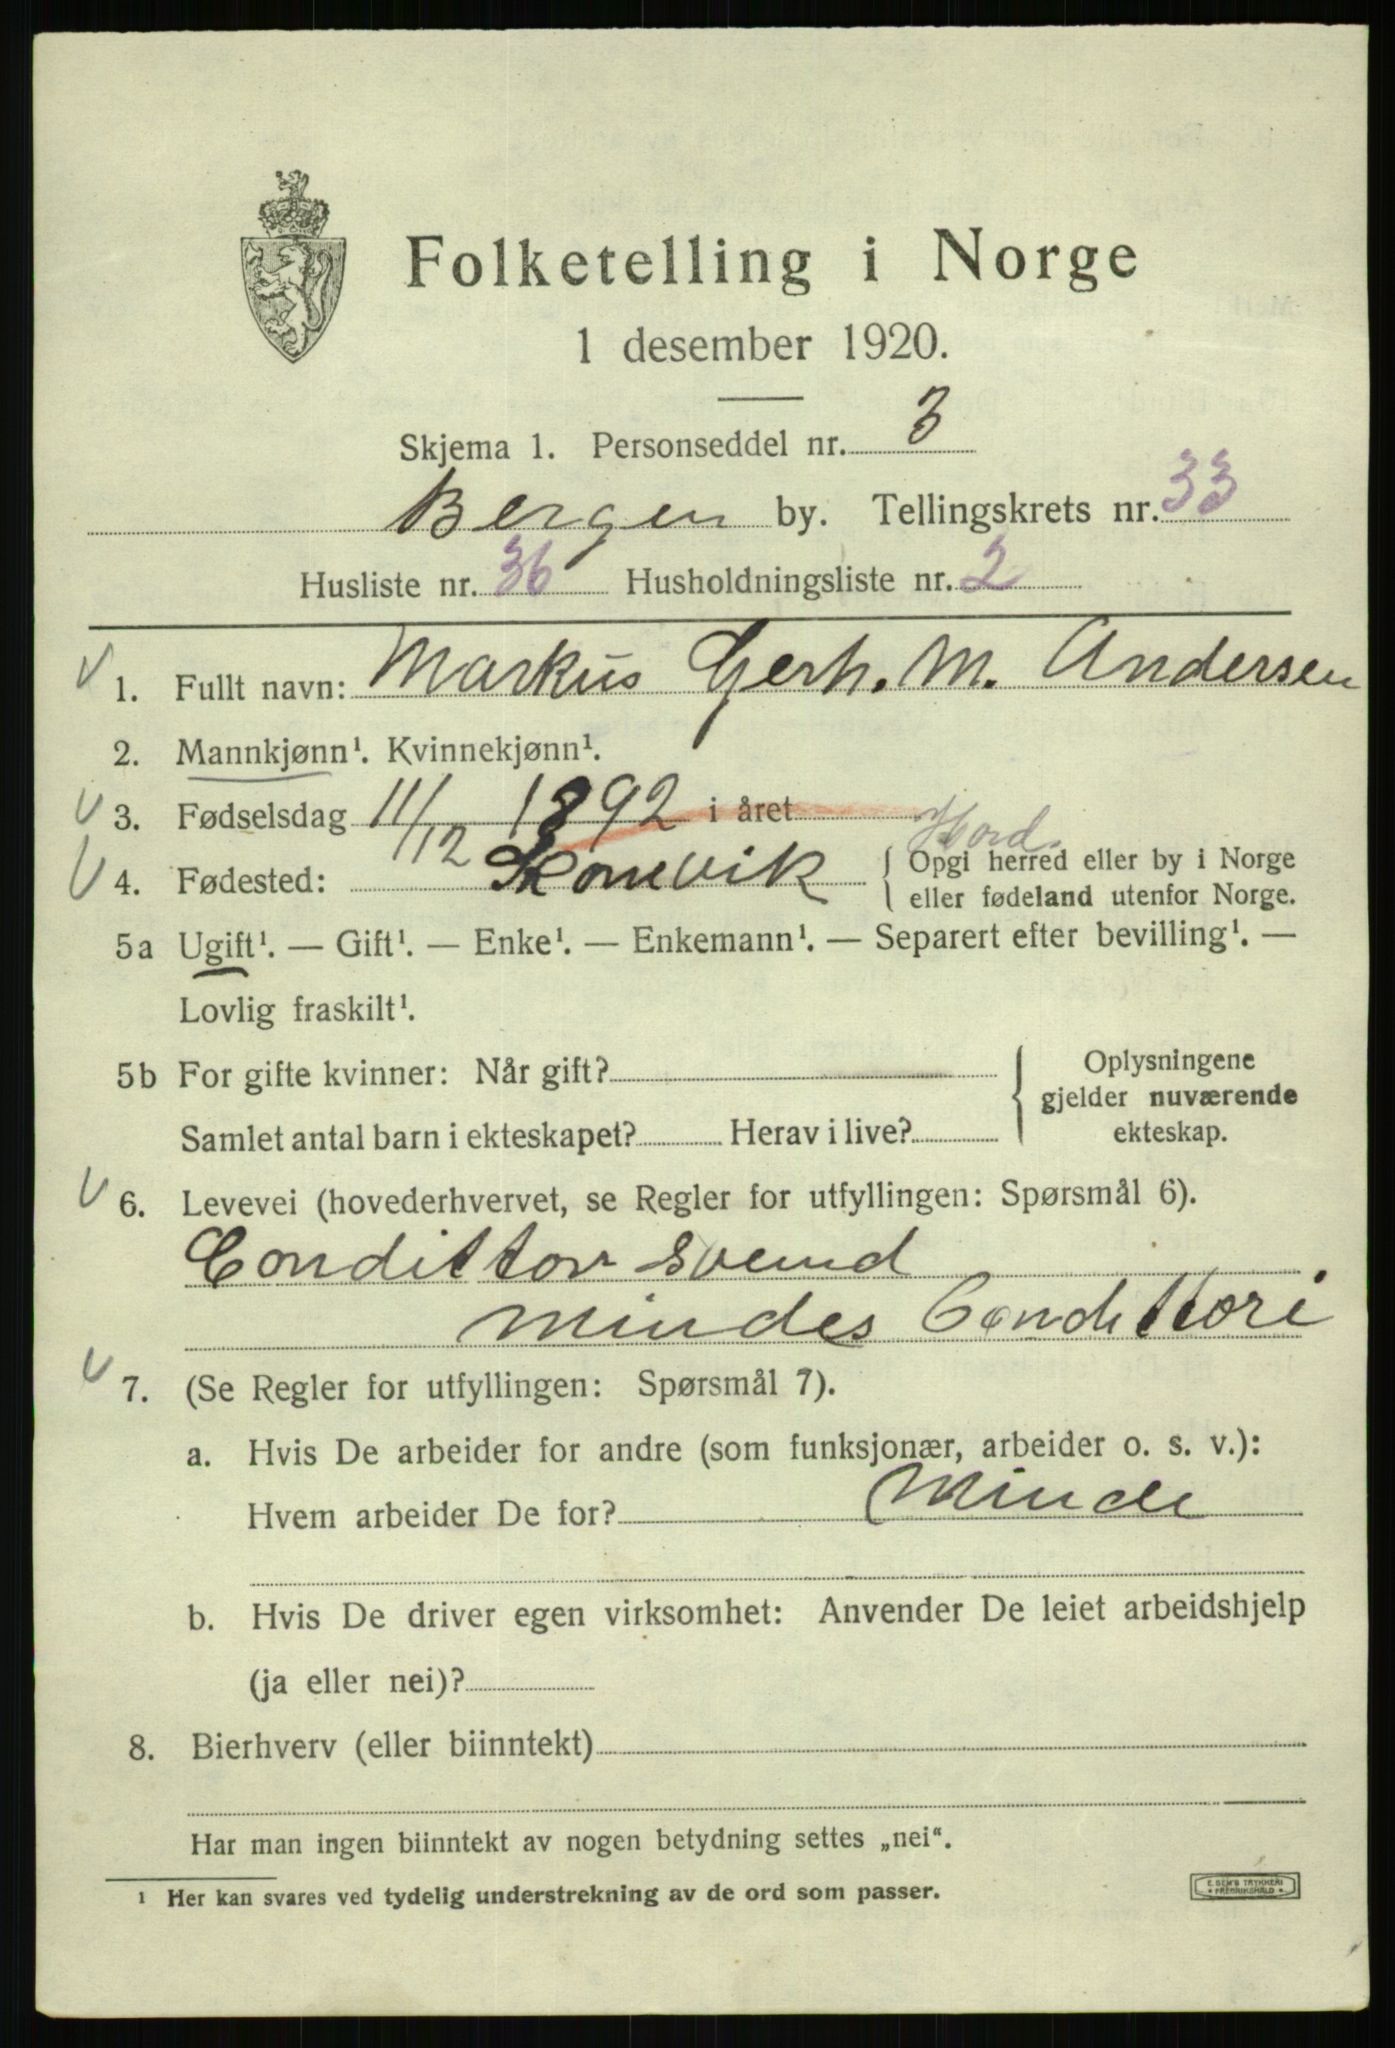 Folketelling i Norge
1 desember 1920.
Skjema 1. Personseddel nr. 3
Bergen by. Tellingskrets nr. 33
Husliste nr. 36 Husholdningsliste nr. 2
1. Fullt navn: Markus Gerh. M. Andersen
2. Mannkjønn¹. Kvinnekjønn¹.
3. Fødselsdag 11/12 1892 i året
Hord.
4. Fødested: Skonevik { Opgi herred eller by i Norge
eller fødeland utenfor Norge.
5a Ugift¹. — Gift¹. — Enke¹. — Enkemann¹. — Separert efter bevilling¹. —
Lovlig fraskilt¹.
5b For gifte kvinner: Når gift? { Oplysningene
gjelder nuværende
Samlet antal barn i ekteskapet? Herav i live? ekteskap.
6. Levevei (hovederhvervet, se Regler for utfyllingen: Spørsmål 6).
Condittor svend
Mindes Condittori
7. (Se Regler for utfyllingen: Spørsmål 7).
a. Hvis De arbeider for andre (som funksjonær, arbeider o. s. v.):
Hvem arbeider De for? Minde
b. Hvis De driver egen virksomhet: Anvender De leiet arbeidshjelp
(ja eller nei)?
8. Bierhverv (eller biinntekt)
Har man ingen biinntekt av nogen betydning settes „nei“.
¹ Her kan svares ved tydelig understrekning av de ord som passer.
E. SEM'S TRYKKERI
FREDRIKSHALD